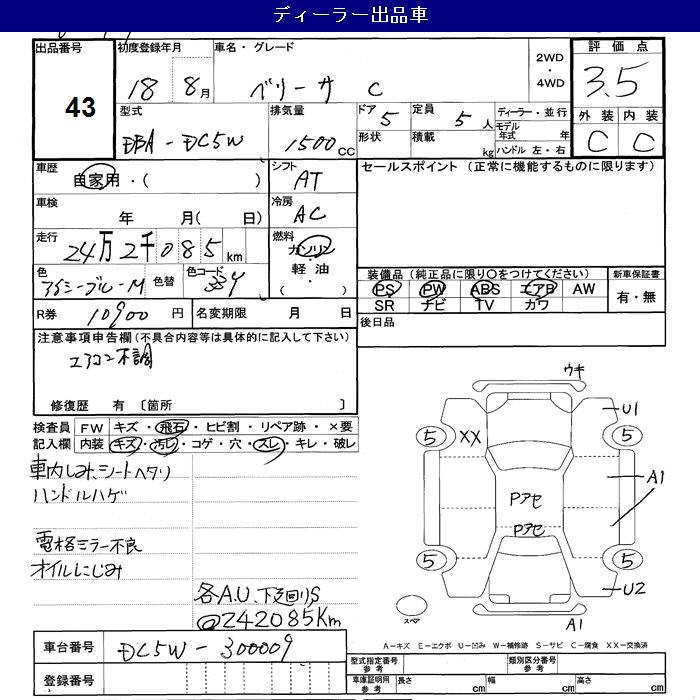 ディーラー出品車
出品番号
43
初度登録年月
18 8月
車名・グレード
ベリーサ C
2WD
・
4WD
評価点
3.5
外装 内装
C C
型式
DBA-DC5W
排気量
1500cc
ドア 5
形状
定員 5人
積載 kg
ディーラー・並行
モデル
年式 年
ハンドル 左・右
車歴
自家用・( )
シフト
AT
セールスポイント (正常に機能するものに限ります)
車検
年 月( 日)
冷房
AC
走行
24万2千085km
燃料
ガソリン
軽油
・( )
色
色替
色コード
装備品(純正品に限り○をつけてください)
PS PW ABS エアB AW
SR ナビ TV カワ
新車保証書
有・無
R券 10900円
名変期限 月 日
後日品
注意事項申告欄(不具合内容等は具体的に記入して下さい)
エアコン不調
修復歴 有〔箇所 〕
検査員
記入欄
FW キズ・飛石・ヒビ割・リペア跡・×要
内装 キズ・汚レ・コゲ・穴・スレ・キレ・破レ
車内しみ、シートヘタリ
ハンドルハゲ
電格ミラー不良
オイルにじみ
各A.U.下廻りS
@242085Km
ウキ
U1
5 XX 5
A1
Pアセ
Pアセ
5 5
U2
スペア
A1
A-キズ E-エクボ U-凹み W-補修跡 S-サビ C-腐食 XX-交換済
車台番号
DC5W-300009
登録番号
型式指定番号
参考
類別区分番号
参考
車庫証明用
参考
長さ cm
幅 cm
高さ cm